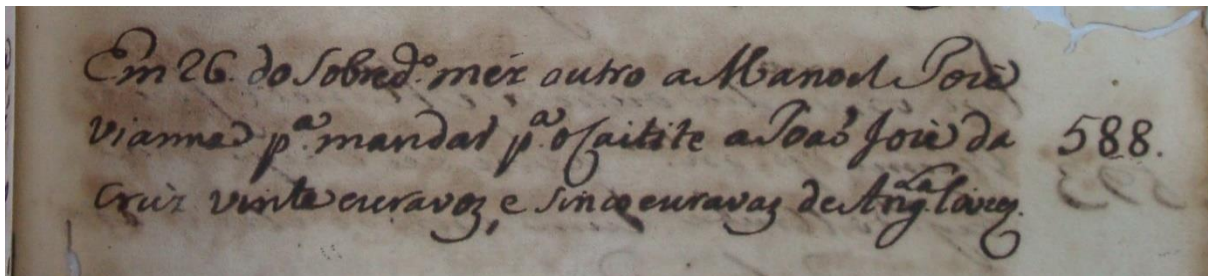 Em 26. do Sobred.º mez outro a Manoel José
Vianna p.ª mandar p.ª o Caitite a Joaõ José da 588.
Cruz vinte escravos, e sinco escravas de Ang.ª